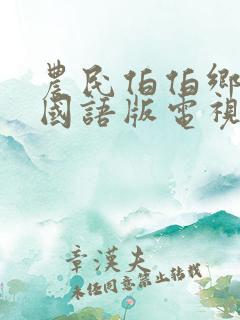 農民伯伯鄉
國語版電視
章漢夫
未經同意禁止轉載